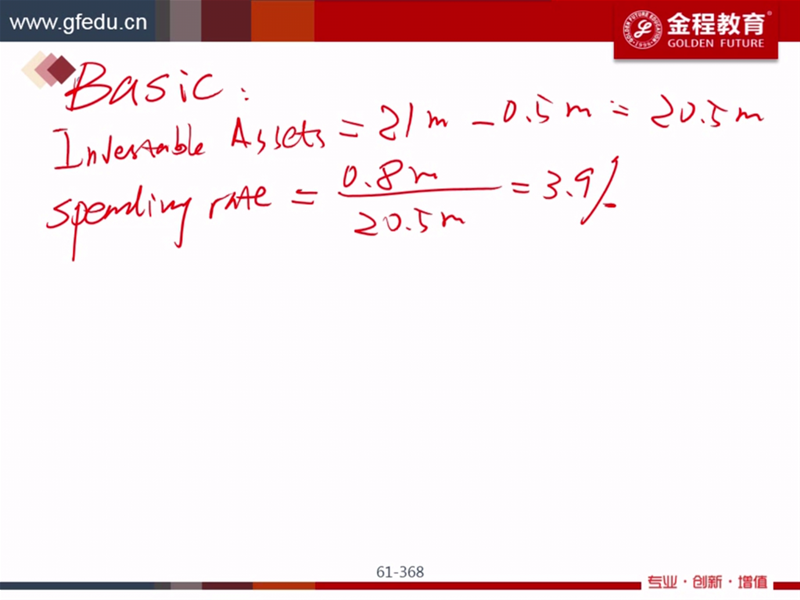 www.gfedu.cn
金程教育®
GOLDEN FUTURE
Basic:
Investable Assets = 21m - 0.5m = 20.5m
spending rate = 0.8m / 20.5m = 3.9%
61-368
专业·创新·增值